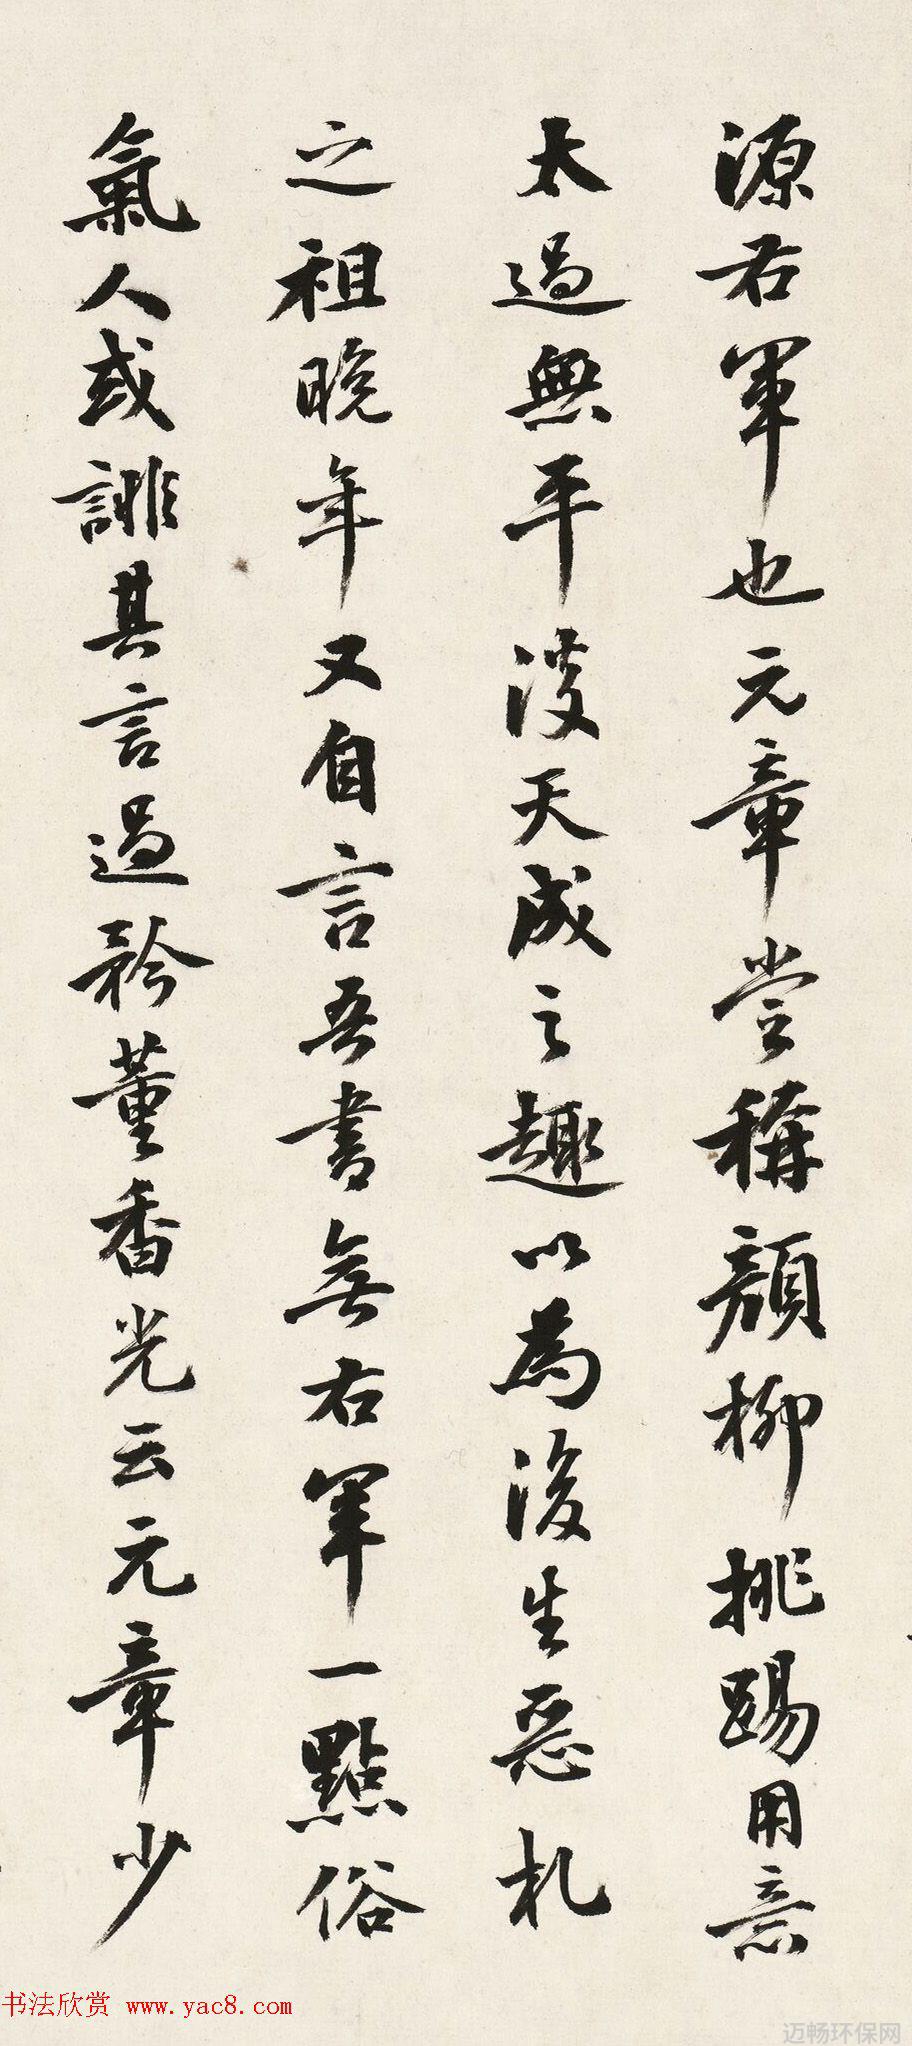 源右軍也元章嘗稱顏柳挑踢用意
太過無平淡天成之趣以為後生惡札
之祖晚年又自言吾書無右軍一點俗
氣人或誹其言過矜董香光云元章少
书法欣赏 www.yac8.com
迈畅环保网